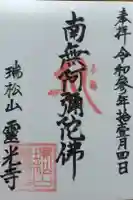 奉拝 令和参年拾壹月四日
南無阿彌陀佛
瑞松山
靈光寺